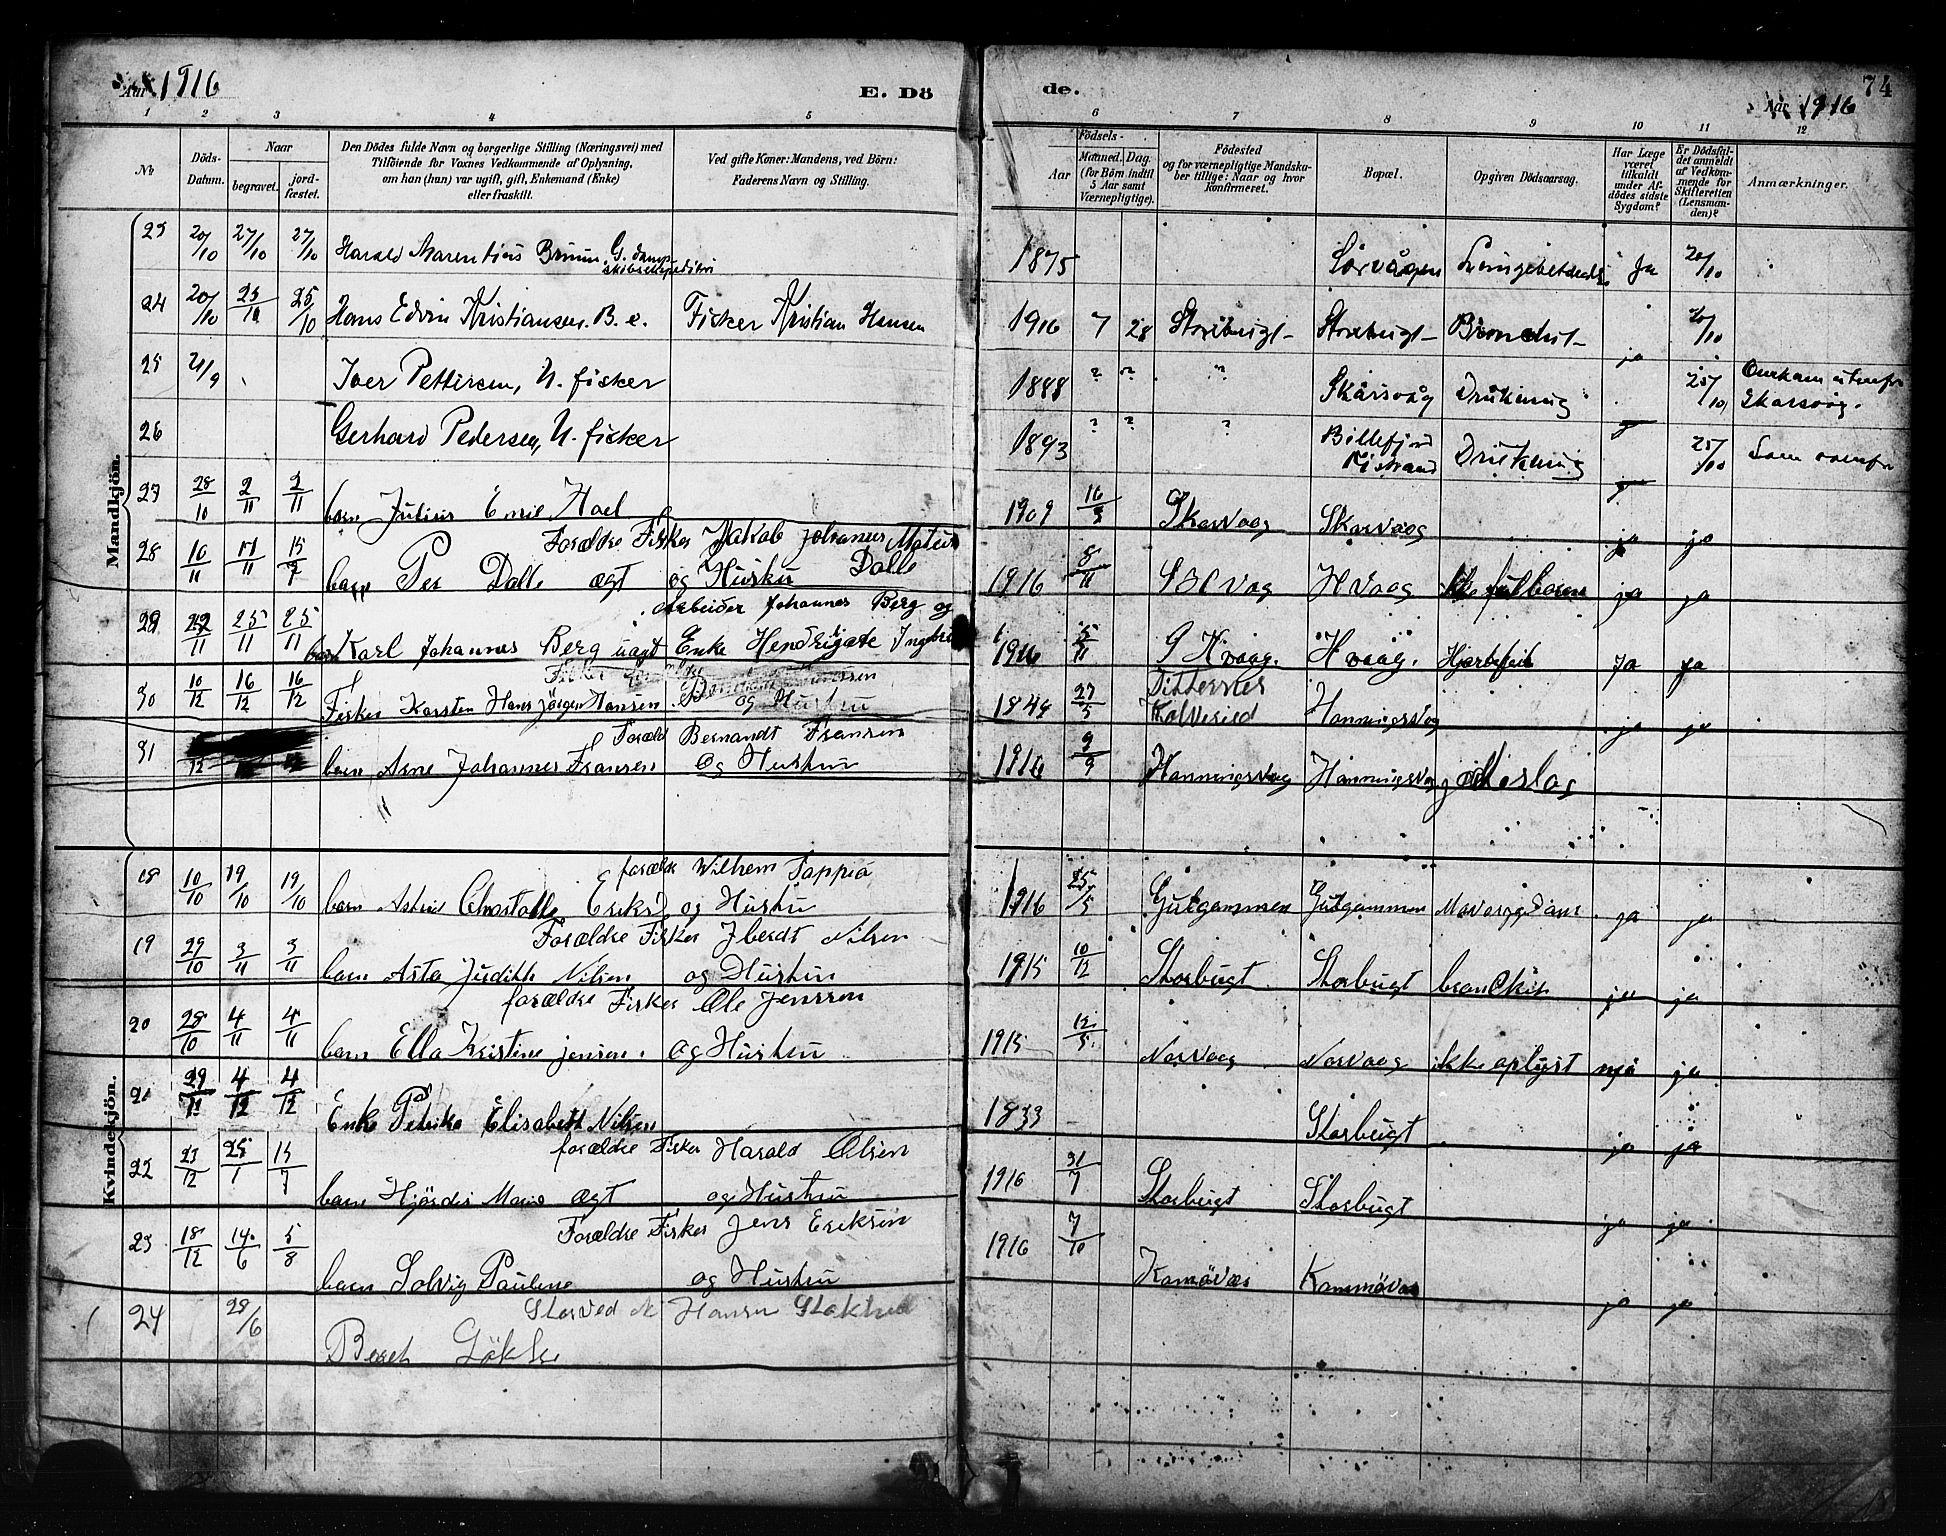 Aar 1916
E. Dö
de.
74
Aar 1916
1 2 3 4 5 6 7 8 9 10 11 12
No
Döds-Datum.
Naar
begravet.
jord-fæstet.
Den Dödes fulde Navn og borgerlige Stilling (Næringsvei) med
Tilföiende for Voxnes Vedkommende af Oplysning,
om han (hun) var ugift, gift, Enkemand (Enke)
eller fraskilt.
Ved gifte Koner: Mandens, ved Börn:
Faderens Navn og Stilling.
Födsels-
Aar
Maaned. Dag.
(for Börn indtil
5 Aar samt
Værnepligtige).
Födested
og for værnepligtige Mandska-
ber tillige: Naar og hvor
Konfirmeret.
Bopæl.
Opgiven Dödsaarsag.
Har Læge
været
tilkaldt
under Af-
dödes sidste
Sygdom?
Er Dödsfal-
det anmeldt
af Vedkom-
mende for
Skifteretten
(Lensman-
den)?
Anmærkninger.
Mandkjön.
23 20/10 27/10 27/10 Harald Marentius Bruun, G. damp-
skibsexpeditör 1875 Sørvågen Ja 20/10
24 20/10 25/10 25/10 Hans Edvin Kristiansen. B. e. Fisker Kristian Hansen 1916 7 28 Storbugt Storbugt ja 20/10
25 21/9 Iver Pettersen, U. fisker 1888 ? ? " Skarsvåg Drukning 25/10 Omkom utenfor
Skarsvåg.
26 Gerhard Pedersen, U. fisker 1893 ? ? ? Billefjord
Kistrand Drukning 25/10 Som ovenfor
27 28/10 2/11 2/11 barn Julius Emil Hoel 1909 16/3 Skarvaag Skarvaag ja ja
Forældre Fisker Jakob Johannes
28 10/11 barn Per Dalle ægt og Hustru Dalle 1916 8/11 Hvaag ja ja
Arbeider Johannes Berg og
29 22/11 25/11 25/11 barn Karl Johannes Berg uægt Enke 1916 5/11 Hvaag. Hjertefeil ja ja
30 10/12 16/12 16/12 Fisker Karsten Hans Jörgen Hansen og Hustru 27/5 Honningsvag ja ja
Foræld Bernandt Fransen
31 barn Arne Johannes Fransen og Hustru 1916 9/9 Honningsvag Honningsvag
Kvindekjön.
forældre Wilhelm Tappia
18 10/10 19/10 19/10 barn Astrid og Hustru 1916 25/5 Gutgammen Gutgammen ja ja
Forældre Fisker Nilsen
19 29/10 3/11 3/11 barn Asta Judith Nilsen og Hustru 1915 10/12 Storbugt Storbugt ja ja
forældre Fisker Ole Jenssen
20 28/10 4/11 4/11 barn Ella Kristine Jensen. og Hustru 1915 12/5 Norvaag Norvaag ikke oplyst ja
21 29/11 4/12 4/12 Enke Petrika Elisabeth Nilsen 1833 Storbugt ja ja
forældre Fisker Harald Olsen
22 23/12 25/1 15/7 barn Hjördis Marie ægt og Hustru 1916 31/7 Storbugt Storbugt ja ja
Forældre Fisker Jens Eriksen
23 18/12 14/6 5/8 barn Solvig Pauline og Hustru 1916 7/10 Kamövær Kammövær ja ja
24 28/6 Hansen